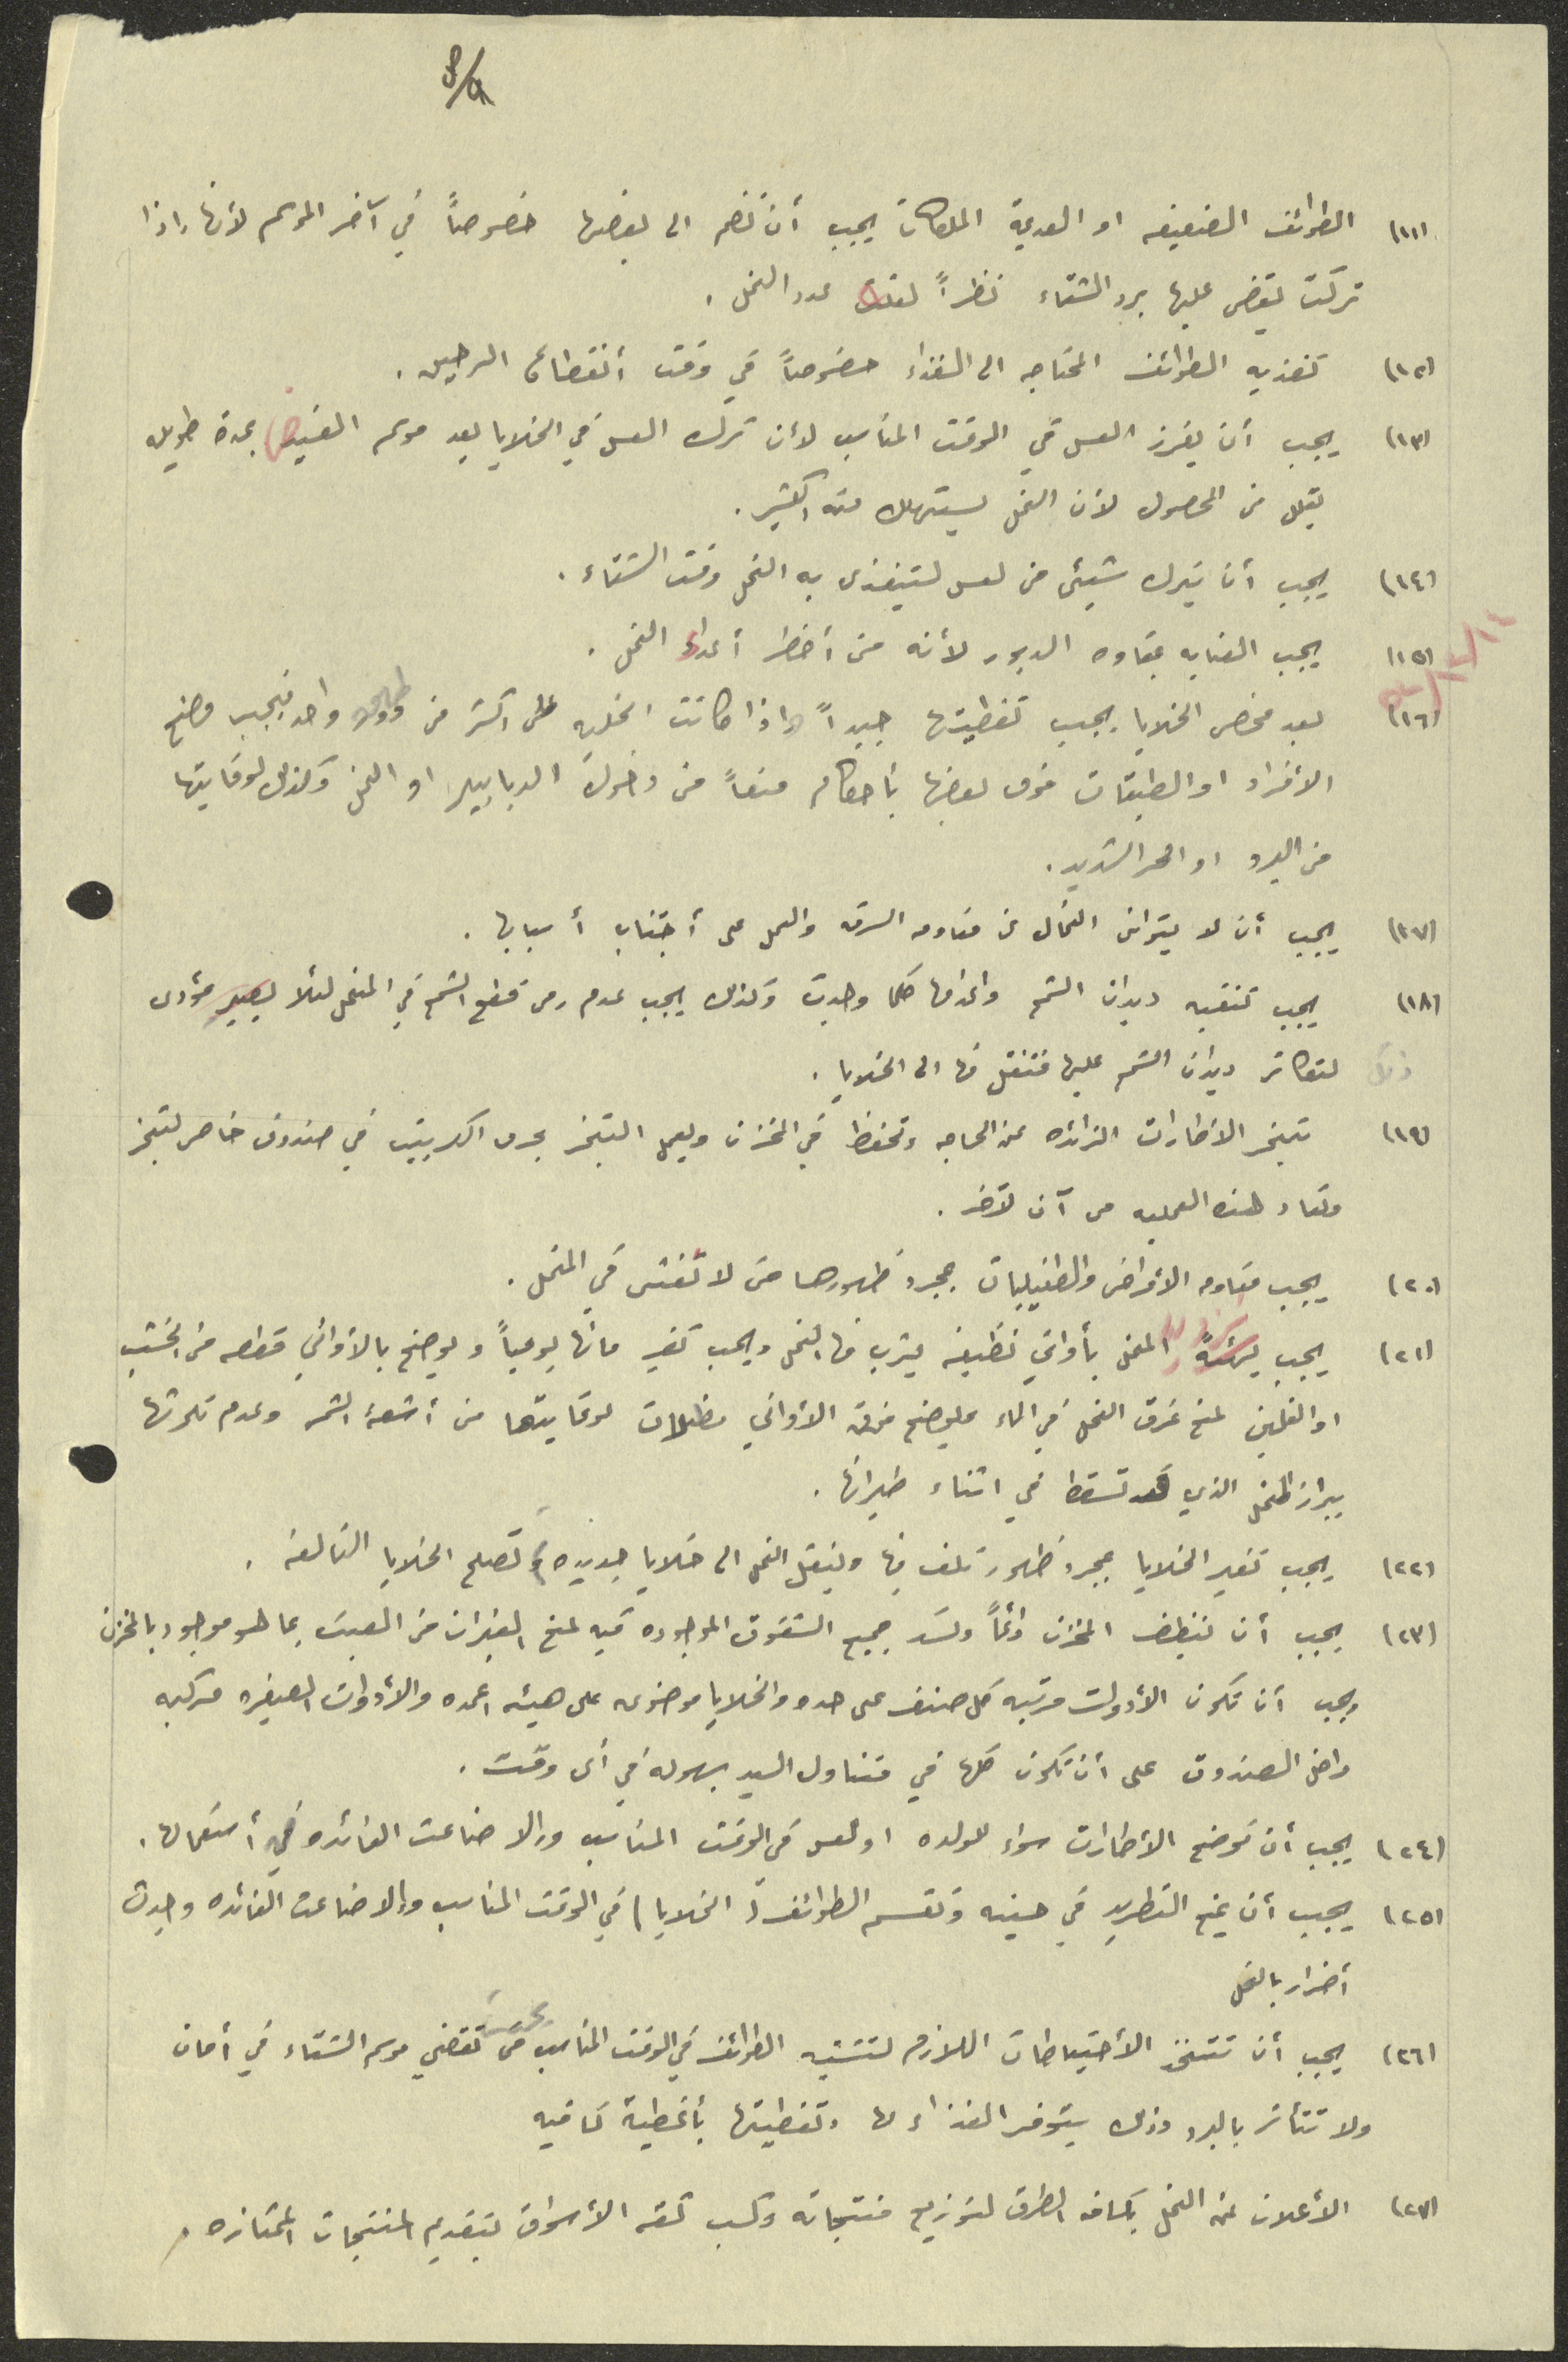 (١١) الطوائف الضعيفه او العديمة الملكات يجب أن تضم الى بعضها خصوصاً في آخر الموسم لأنها إذا
تركت يقضى عليها برد الشتاء نظراً لقلة عدد النحل .
(١٢) تغذيه الطوائف المحتاجه الى الغذاء خصوصاً في وقت أنقطاع الرحيق .
(١٣) يجب أن يفرز العسل في الوقت المناسب لأن ترك العسل في الخلايا بعد موسم الفيض بمدة طويله
يقلل من المحصول لأن النحل يستهلك منه اكثير .
(١٤) يجب أن يترك شيئ من لعسل ليتغذى به النحل وقت الشتاء .
(١٥) يجب العنايه بمقاومه الدبور لأنه من أخطر أعداء النحل .
(١٦) بعد فحص الخلايا يجب تغطيتها جيداً واذا كانت الخليه على اكثر من واحد فيجب وضع
الأفراد او الطبقات فوق بعضها بأحكام منعاً من دخول الدبابير او النمل وكذلك لوقايتها
من البرد او الحر الشديد .
(١٧) يجب أن لا يتوانى النحال عن مقاومه السرقه والعمل على أجتناب أسبابها .
(١٨) يجب تنقيه ديدان الشمع واعدامها كلما وجدت وكذلك يجب عدم رمى قطع الشمع في المنحل لئلا يصير مؤدى
ذلك لتكاثر ديدان الشمع عليها فتنتقل منها الى الخلايا .
(١٩) تبخر الاطارات الزائده عن الحاجه وتحفظ في المخزن ويعمل التبخر بحرق الكبريت في صندوق خاص لتبخر
وتعاد هذه العمليه من آن لآخر .
(٢٠) يجب مقاومه الأمراض والطفيليات بمجرد ظهورها حتى لا تفشى في المنحل .
(٢١) يجب المنحل بأواني نظيفه يشرب منها النحل ويجب تغير مائها يومياً ويوضع بالأواني قطعه من الخشب
او الفلين لمنع غرق النحل في الماء ويوضع فوق الأواني مظلات لوقايتها من أشعة الشمس وعدم تلوثها
ببراز النحل الذي قد تسقط في اثناء طيرانها .
(٢٢) يجب تغير الخلايا بمجرد ظهور تلف فيها وينقل النحل الى خلايا جديده و تصلح الخلايا التالفه .
(٢٣) يجب أن ينظف المخزن دائماً وتسد جميع الشقوق الموجوده فيه لمنع الفيران من العبث بما هو موجود بالمخزن
ويجب أن تكون الأدوات مرتبه كل صنف على حده والخلايا موضوعه على هيئه اعمده والأدوات الصغيره مركبه
داخل الصندوق على أن تكون كلها في متناول اليد بسهوله في أى وقت .
(٢٤) يجب أن توضع الأطارات سواء للولده او لعسل في الوقت المناسب والا ضاعت الفائده في أستعمالها .
(٢٥) يجب أن يمنع التطريد في حينه وتقسم الطوائف (الخلايا) في الوقت المناسب وإلا ضاعت الفائده وحدث
أضرار بالنحل
(٢٦) يجب أن تتخذ الأحتياطات اللازم لتشتيه الطوائف في الوقت المناسب حتى تقضي موسم الشتاء في أمان
ولا تتأثر بالبرد وذلك بتوفر الغذاء لها وتغطيتها بأغطية كافيه
(٢٧) الأعلان عن النحل بكافه الطرق لتوزيع منتجاته وكسب ثقه الأسواق بتقديم المنتجات الممتازه .